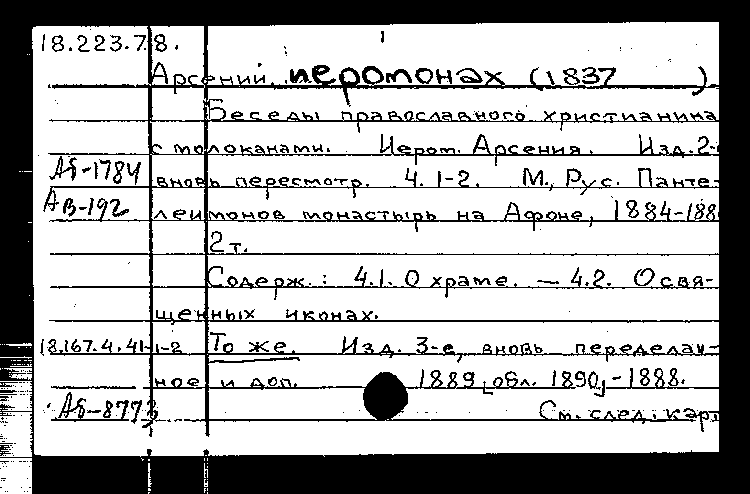 18.223.7.8.
Арсений, иеромонах (1837 ).
Беседы православного христианина
с молоканами. Иером. Арсения. Изд. 2-
Аб-1784 вновь пересмотр. Ч. 1-2. М., Рус. Панте-
Ав-192 леимонов монастырь на Афоне, 1884-188
2 т.
Содерж.: Ч.1. О храме. — Ч.2. О свя-
щенных иконах.
18.167.4.41-1-2 То же. Изд. 3-е, вновь переделан-
ное и доп. 1889 [обл. 1890]-1888.
Аб-8773 См. след. карт